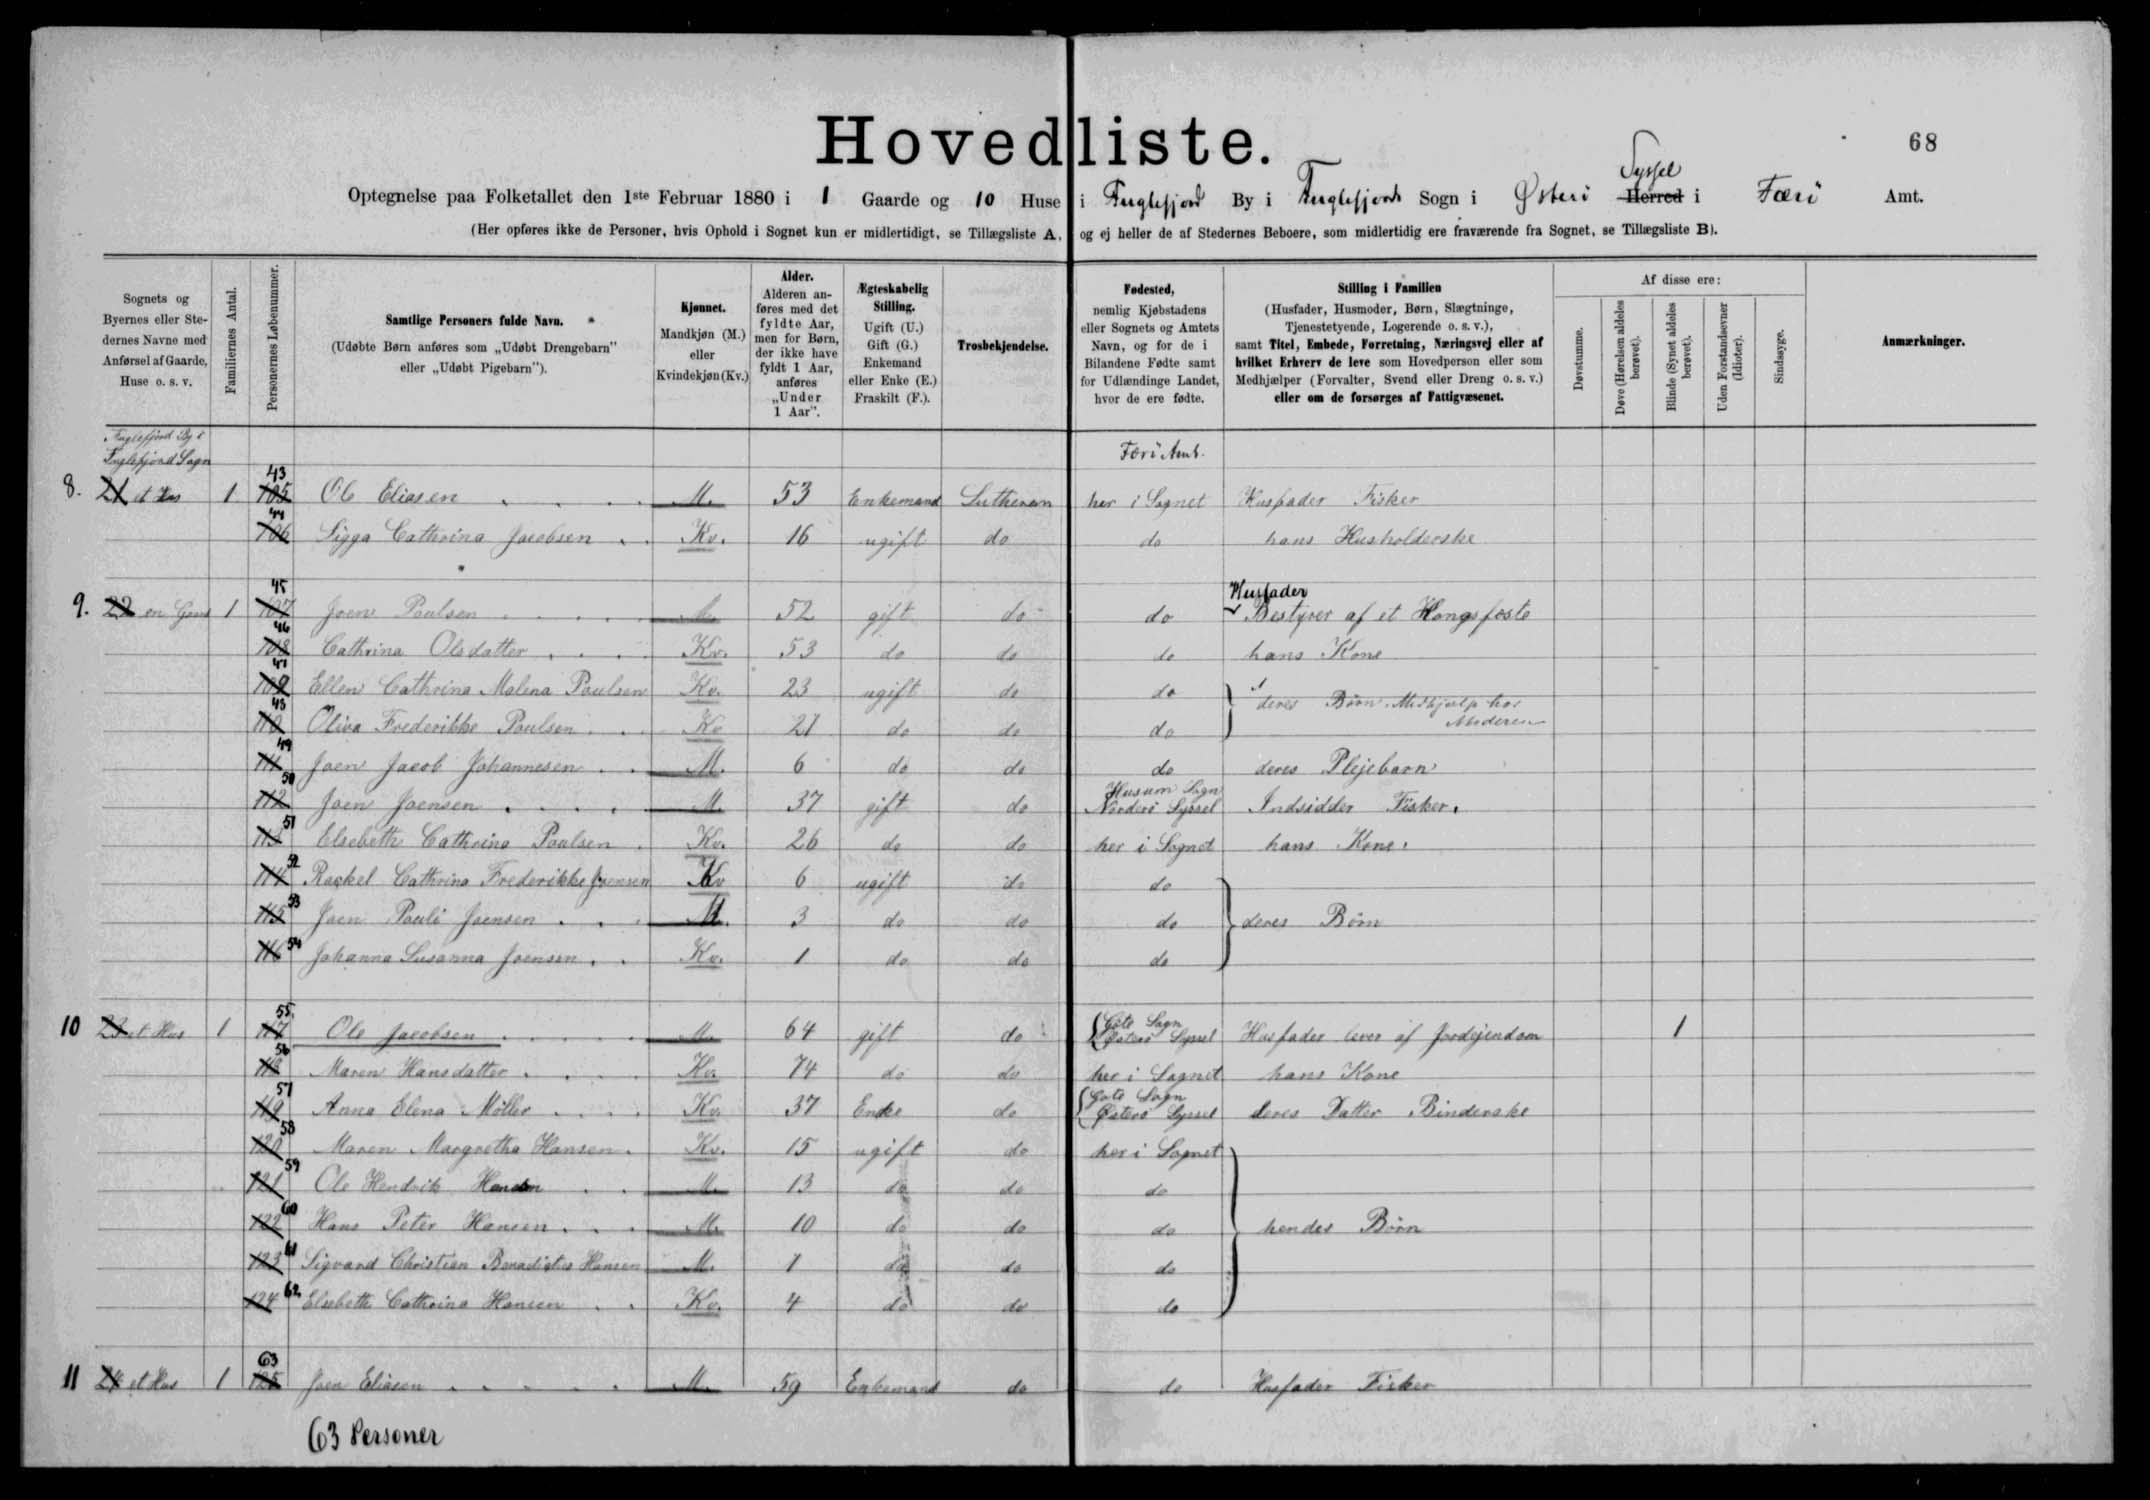 Hovedliste.
68
Optegnelse paa Folketallet den 1ste Februar 1880 i 1 Gaarde og 10 Huse i Fuglefjord By i Fuglefjords Sogn i Østerö Herred Syssel i Færö Amt.
(Her opføres ikke de Personer, hvis Ophold i Sognet kun er midlertidigt, se Tillægsliste A, og ej heller de af Stedernes Beboere, som midlertidig ere fraværende fra Sognet, se Tillægsliste B).
Sognets og Byernes eller Stedernes Navne med Anførsel af Gaarde, Huse o. s. v.
Familiernes Antal.
Personernes Løbenummer.
Samtlige Personers fulde Navn.
(Udøbte Børn anføres som „Udøbt Drengebarn" eller „Udøbt Pigebarn").
Kjønnet.
Mandkjøn (M.) eller Kvindekjøn (Kv.)
Alder.
Alderen anføres med det fyldte Aar, men for Børn, der ikke have fyldt 1 Aar, anføres „Under 1 Aar".
Ægteskabelig Stilling.
Ugift (U.) Gift (G.) Enkemand eller Enke (E.) Fraskilt (F.).
Trosbekjendelse.
Fødested,
nemlig Kjøbstadens eller Sognets og Amtets Navn, og for de i Bilandene Fødte samt for Udlændinge Landet, hvor de ere fødte.
Stilling i Familien
(Husfader, Husmoder, Børn, Slægtninge, Tjenestetyende, Logerende o. s. v.), samt Titel, Embede, Forretning, Næringsvej eller af hvilket Erhverv de leve som Hovedperson eller som Medhjælper (Forvalter, Svend eller Dreng o. s. v.) eller om de forsørges af Fattigvæsenet.
Af disse ere:
Døvstumme.
Døve (Hørelsen aldeles berøvet).
Blinde (Synet aldeles berøvet).
Uden Forstandsevner (Idioter).
Sindssyge.
Anmærkninger.
Fuglefjord By i
Fuglefjord Sogn
Færö Amt.
8. 21 et Hus 1 105 43 Ole Eliasen M. 53 Enkemand Lutheran her i Sognet Husfader Fisker
106 44 Sigga Cathrina Jacobsen Kv. 16 ugift do do hans Husholderske
9. 22 en Gaard 1 107 45 Joen Poulsen M. 52 gift do do Husfader Bestyrer af et Kongsfæste
108 46 Cathrina Olsdatter Kv. 53 do do do hans Kone
109 47 Ellen Cathrina Malena Poulsen Kv. 23 ugift do do deres Børn. Medhjælp hos Moderen
110 48 Oliva Frederikke Poulsen Kv 21 do do do
111 49 Joen Jacob Johannesen M. 6 do do do deres Plejebarn
112 50 Joen Joensen M. 37 gift do Husum Sogn Norderö Syssel Indsidder Fisker.
113 51 Elsebeth Cathrina Poulsen Kv. 26 do do her i Sognet hans Kone.
114 52 Rackel Cathrina Frederikke Joensen Kv 6 ugift do do
115 53 Joen Pauli Joensen M. 3 do do do deres Børn
116 54 Johanna Susanna Joensen Kv. 1 do do do
10 23 et Hus 1 117 55 Ole Jacobsen M. 64 gift do Göte Sogn Østerö Syssel Husfader lever af Jordejendom 1
118 56 Maren Hansdatter Kv. 74 do do her i Sognet hans Kone
119 57 Anna Elena Möller Kv. 37 Enke do Göte Sogn Østerö Syssel deres Datter Binderske
120 58 Maren Margretha Hansen Kv. 15 ugift do her i Sognet
121 59 Ole Hendrik Hansen M. 13 do do do
122 60 Hans Peter Hansen M. 10 do do do hendes Børn
123 61 Sigvard Christian Benedictus Hansen M. 1 do do do
124 62 Elsebeth Cathrina Hansen Kv. 4 do do do
11 24 et Hus 1 125 63 Joen Eliasen M. 59 Enkemand do do Husfader Fisker
63 Personer